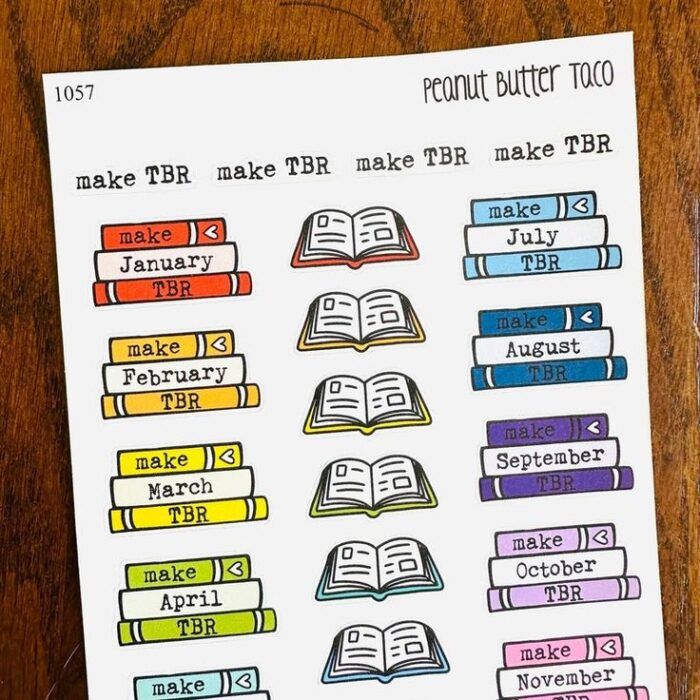 1057
Peanut Butter Taco
make TBR make TBR make TBR make TBR
make
January
TBR
make
February
TBR
make
March
TBR
make
April
TBR
make
make
July
TBR
make
August
TBR
make
September
TBR
make
October
TBR
make
November
TBR